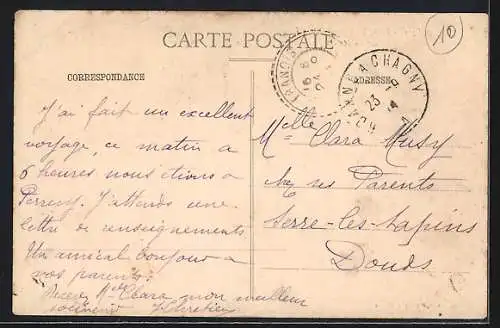 CARTE POSTALE
CORRESPONDANCE
ADRESSE
10
A CHAGNY
23
14
J'ai fait un excellent
voyage, ce matin a
6 heures nous étions a
J'attends une
lettre de renseignements
Un amical bonjour a
vos parents.
Recevez Mlle Clara mon meilleur
Mlle Clara Musy
chez ses Parents
Serre-les-Sapins
Doubs